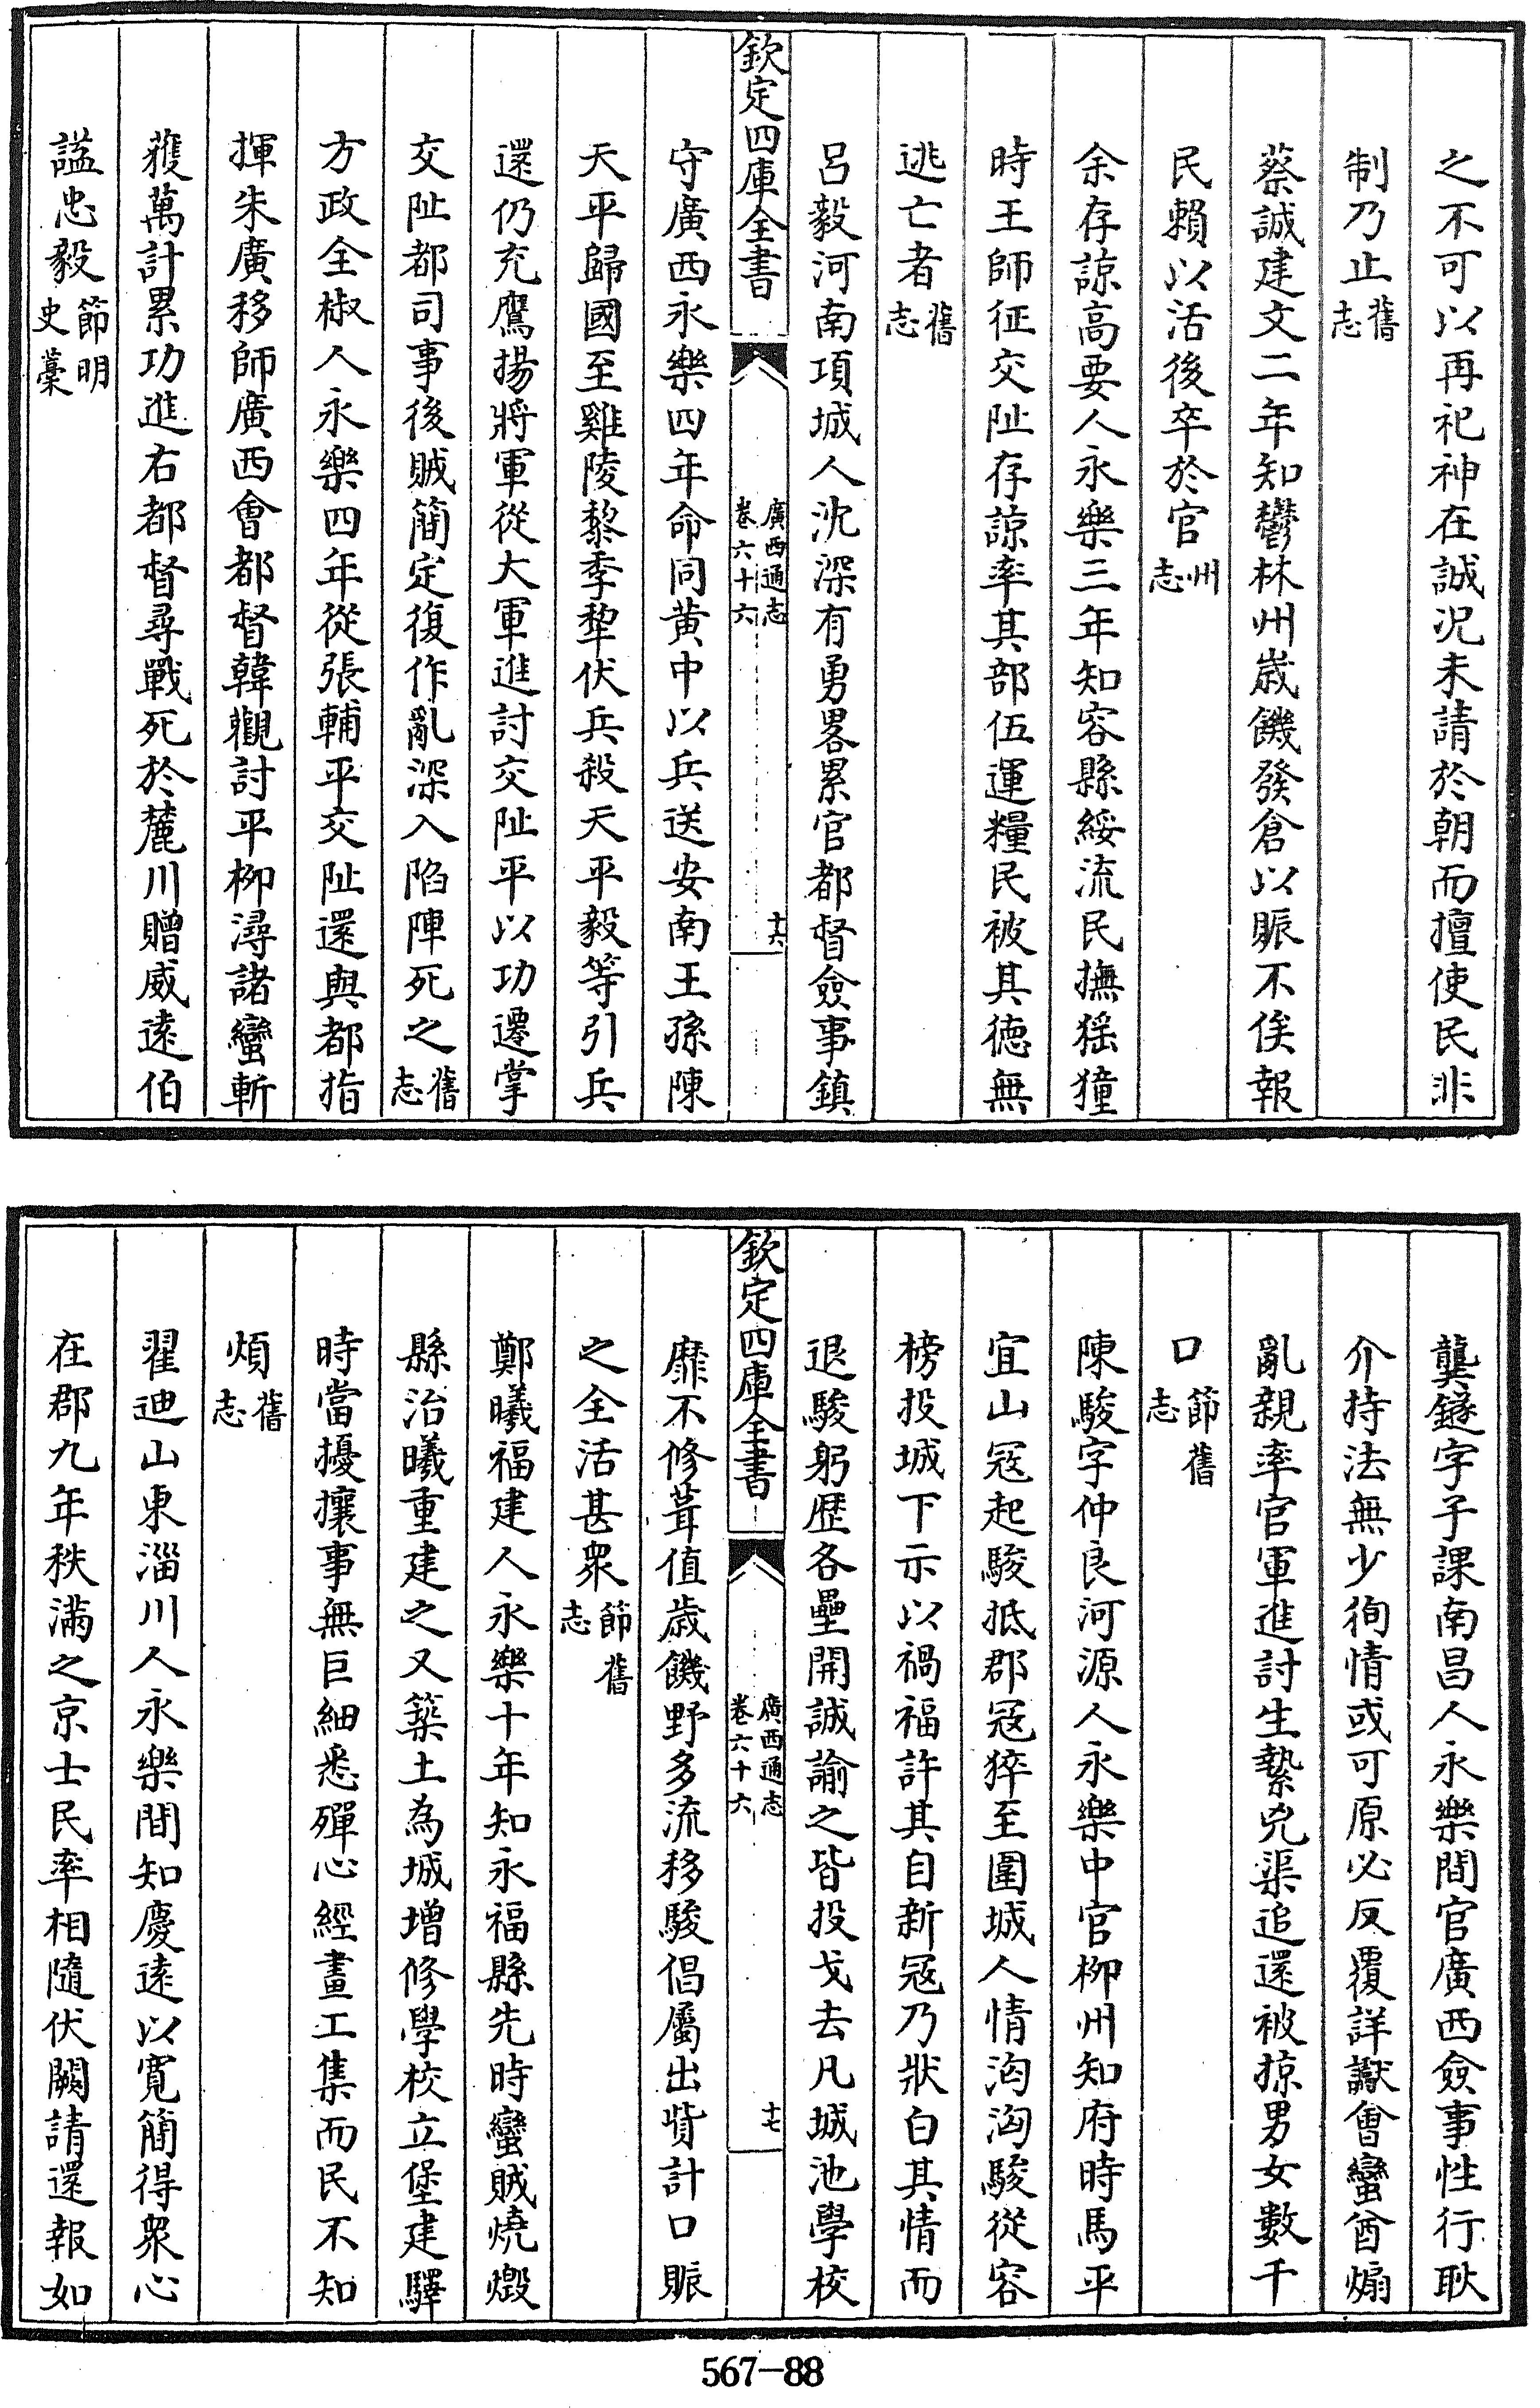 之不可以再祀神在誠況未請於朝而擅使民非
制乃止舊志
蔡誠建文二年知鬱林州嵗饑發倉以賑不俟報
民賴以活後卒於官州志
余存諒高要人永樂三年知容縣綏流民撫猺獞
時王師征交阯存諒率其部伍運糧民被其徳無
逃亡者舊志
呂毅河南項城人沈深有勇畧累官都督僉事鎮
欽定四庫全書
廣西通志
卷六十六
十六
守廣西永樂四年命同黄中以兵送安南王孫陳
天平歸國至雞陵黎季犂伏兵殺天平毅等引兵
還仍充鷹揚將軍從大軍進討交阯平以功遷掌
交阯都司事後賊簡定復作亂深入陷陣死之舊志
方政全椒人永樂四年從張輔平交阯還與都指
揮朱廣移師廣西會都督韓觀討平栁潯諸蠻斬
獲萬計累功進右都督尋戰死於麓川贈威逺伯
謚忠毅節明史藁
龔鐩字子課南昌人永樂間官廣西僉事性行耿
介持法無少徇情或可原必反覆詳讞會蠻酋煽
亂親率官軍進討生縶兇渠追還被掠男女數千
口節舊志
陳駿字仲良河源人永樂中官栁州知府時馬平
宜山冦起駿抵郡冦猝至圍城人情洶洶駿從容
榜投城下示以禍福許其自新冦乃狀白其情而
退駿躬歴各壘開誠諭之皆投戈去凡城池學校
欽定四庫全書
廣西通志
卷六十六
十七
靡不修葺值歳饑野多流移駿倡屬出貲計口賑
之全活甚衆節舊志
鄭曦福建人永樂十年知永福縣先時蠻賊燒燬
縣治曦重建之又築土為城增修學校立堡建驛
時當擾攘事無巨細悉殫心經畫工集而民不知
煩舊志
翟迪山東淄川人永樂間知慶逺以寛簡得衆心
在郡九年秩滿之京士民率相隨伏闕請還報如
567-88